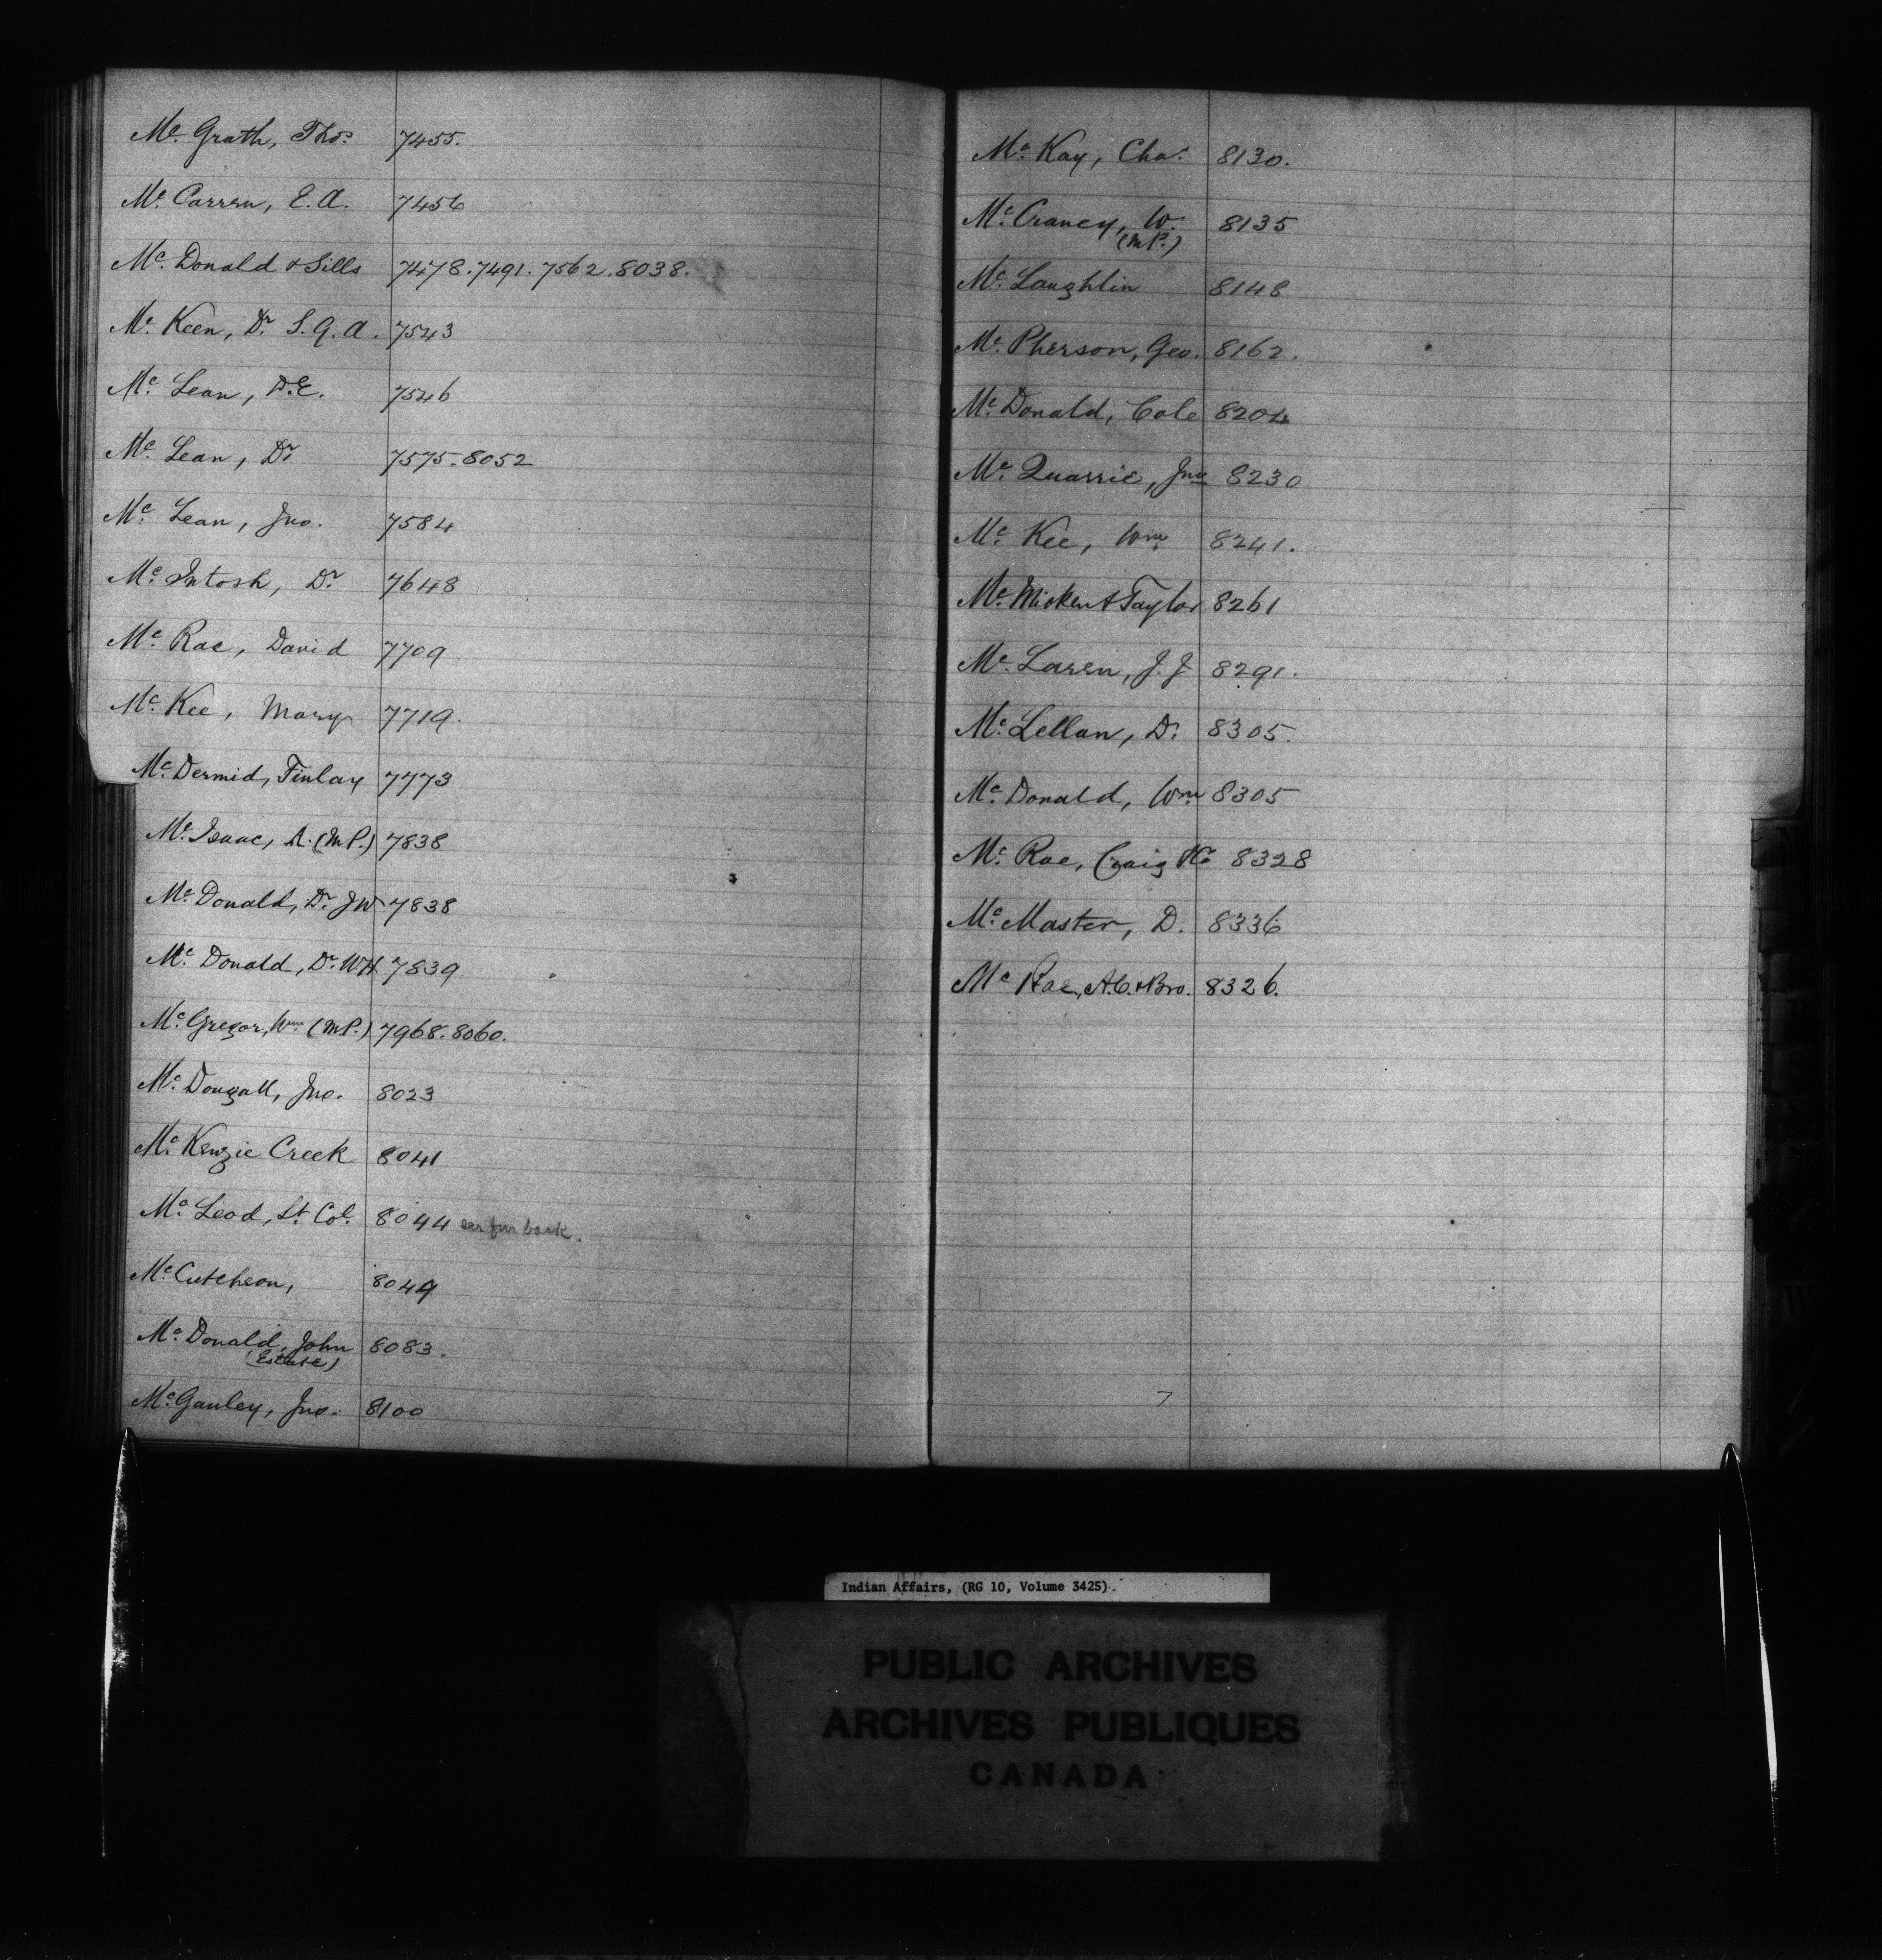 Mc Grath, Thos. 7455.
Mc Carren, E.A. 7456
Mc Donald & Sills 7478.7491.7562.8038.
Mc Keen, Dr S.G.A. 7543
Mc Lean, D.E. 7546
Mc Lean, Dr 7575.8052
Mc Lean, Jno. 7584
Mc Intosh, Dr 7648
Mc Rae, David 7709
Mc Kee, Mary 7719.
Mc Dermid, Finlay 7773
Mc Isaac, A. (M.P.) 7838
Mc Donald, Dr. J W 7838
Mc Donald, Dr. W H. 7839
Mc Gregor, Wm (M.P.) 7968.8060.
Mc Dougall, Jno. 8023
Mc Kenzie Creek 8041
Mc Leod, Lt. Col. 8044 back.
Mc Cutcheon, 8049
Mc Donald, John 8083.
(Estate)
Mc Gauley, Jno. 8100
Mc Kay, Chas. 8130.
Mc Craney, W. 8135
(M.P.)
Mc Laughlin 8148
Mc Pherson, Geo. 8162.
Mc Donald, Cole 8204
Mc Quarrie, Jno 8230
Mc Kee, Wm 8241.
Mc Micken & Taylor 8261
Mc Laren, J.J 8291.
Mc Lellan, D. 8305.
Mc Donald, Wm 8305
Mc Rae, Craig &Co 8328
Mc Master, D. 8336
Mc Rae, A.C. & Bro. 8326.
7
Indian Affairs, (RG 10, Volume 3425).
PUBLIC ARCHIVES
ARCHIVES PUBLIQUES
CANADA